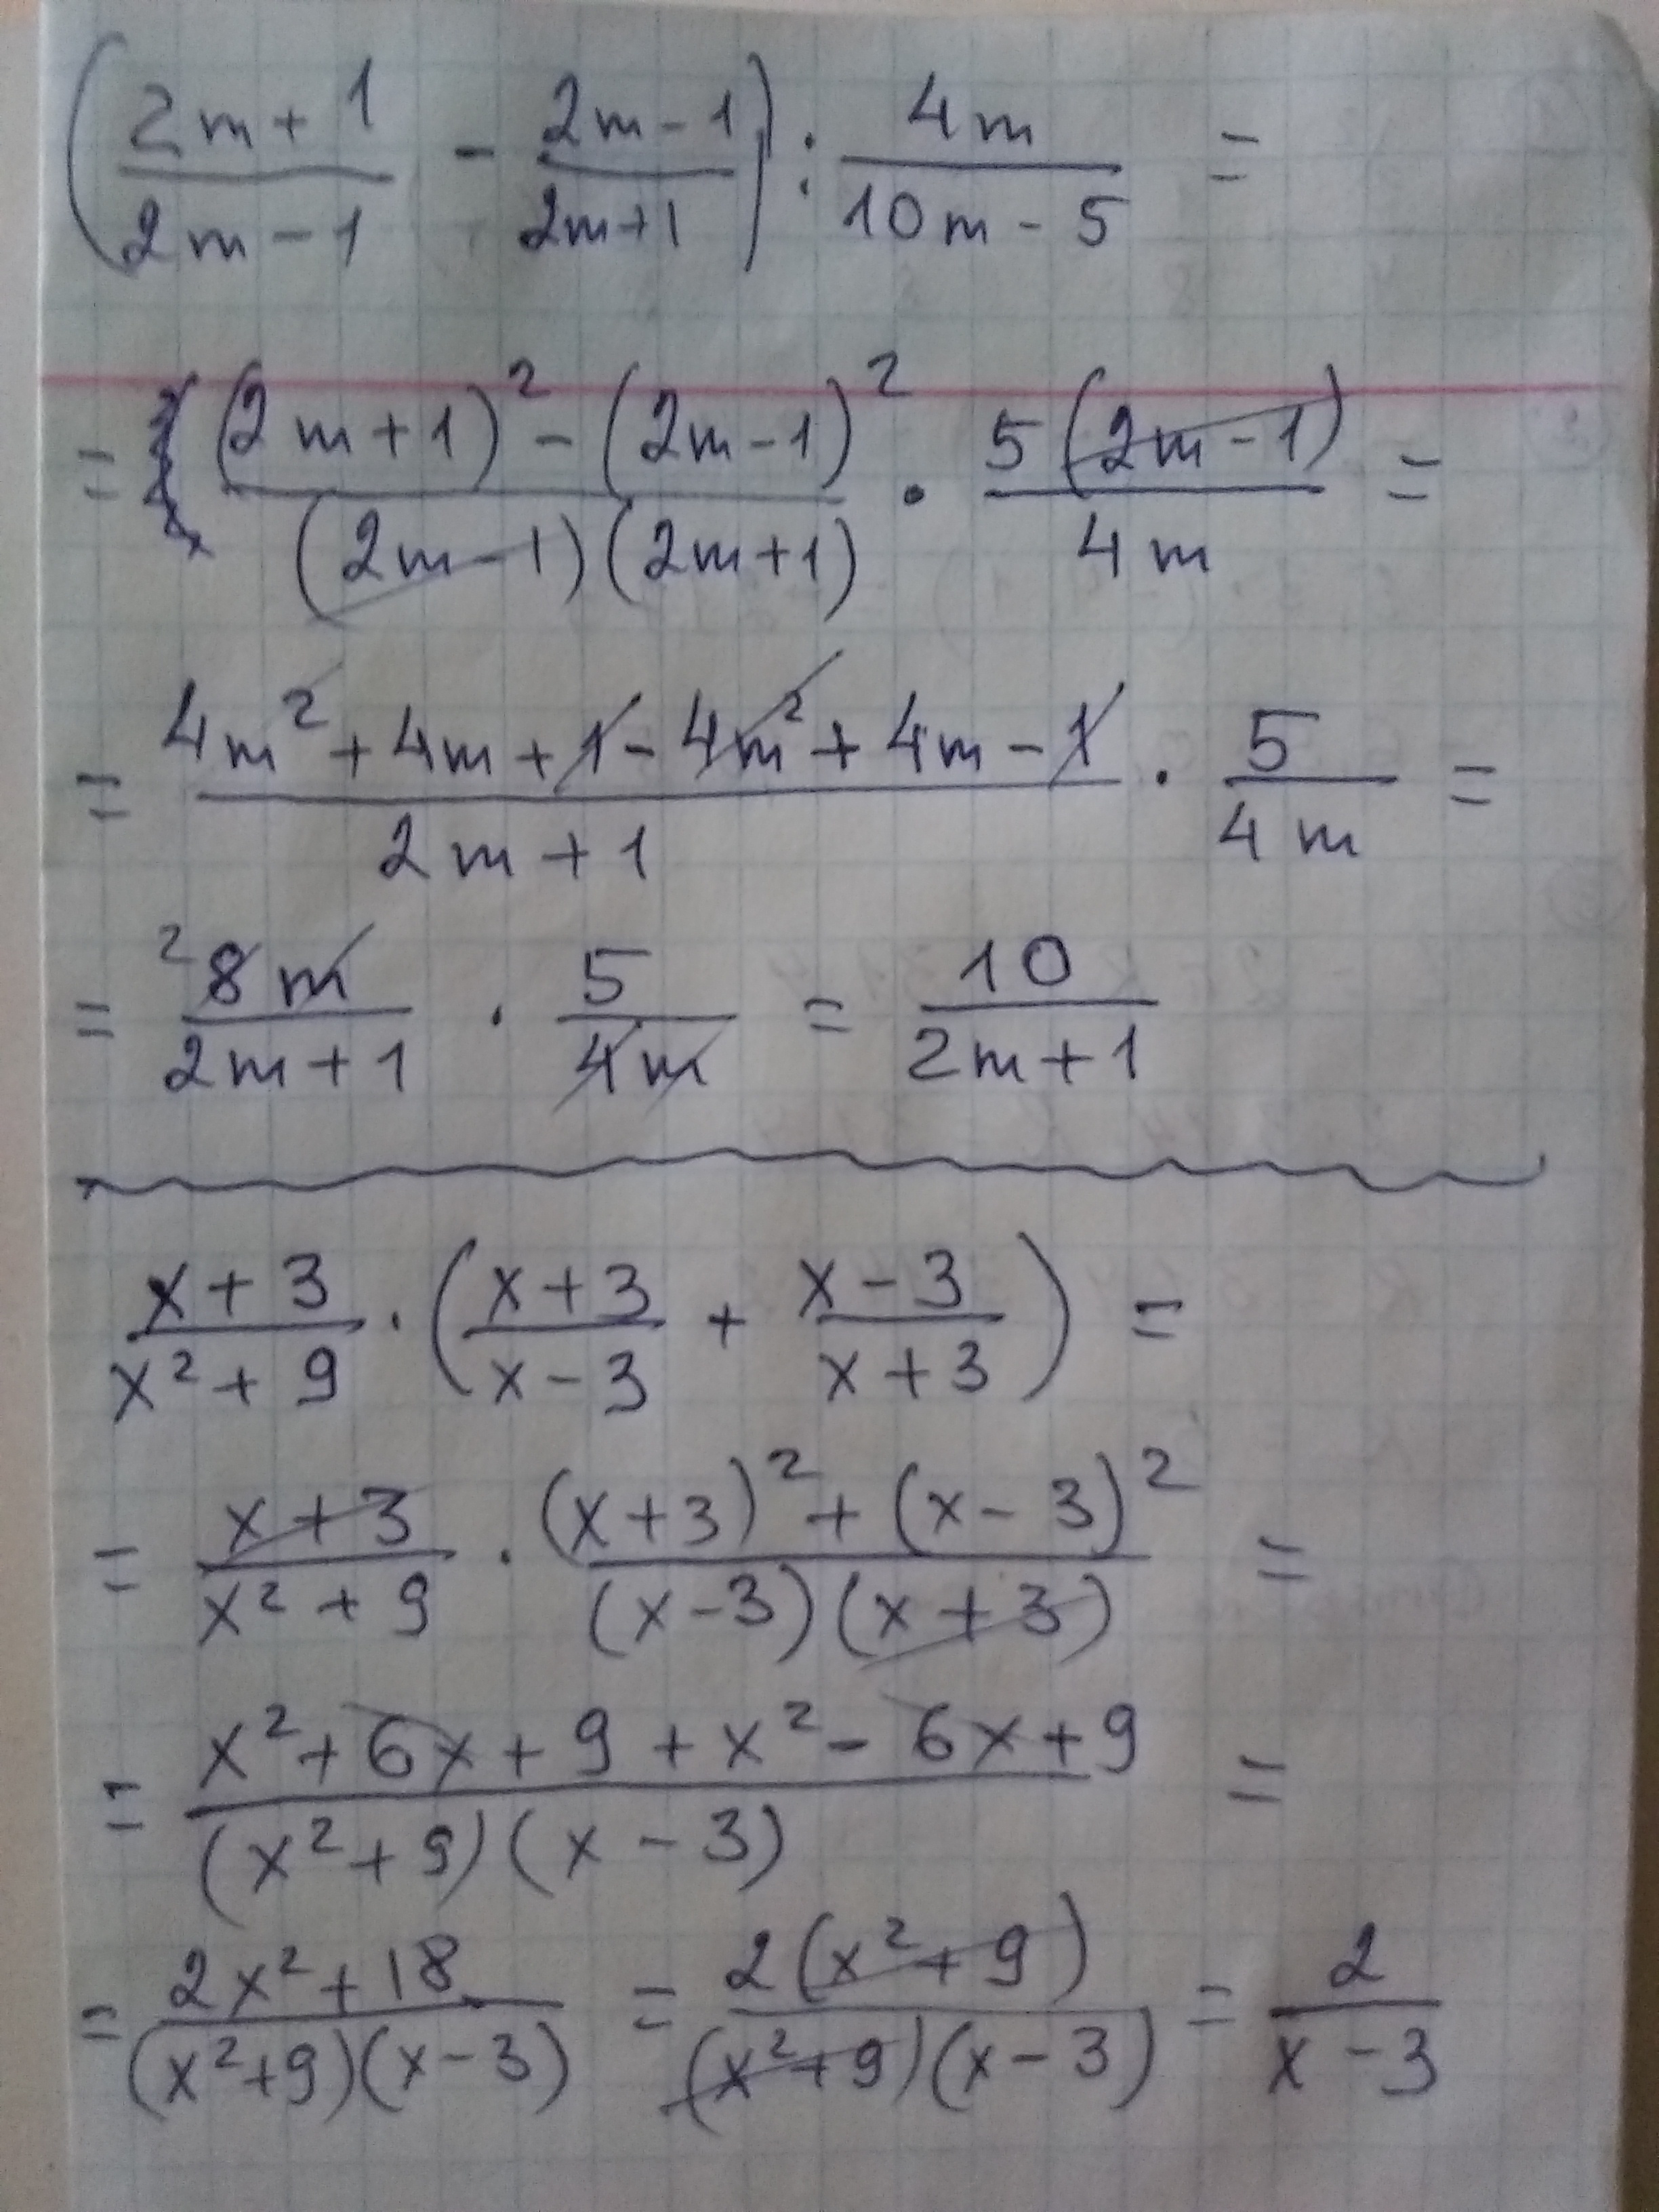 (2m+1/2m-1 - 2m-1/2m+1) : 4m/10m-5 =
= (2m+1)² - (2m-1)²/(2m-1)(2m+1) · 5(2m-1)/4m =
= 4m² + 4m + 1 - 4m² + 4m - 1/2m+1 · 5/4m =
= ² 8m/2m+1 · 5/4m = 10/2m+1
x+3/x²+9 · (x+3/x-3 + x-3/x+3) =
= x+3/x²+9 · (x+3)² + (x-3)²/(x-3)(x+3) =
= x²+6x+9+x²-6x+9/(x²+9)(x-3) =
= 2x²+18/(x²+9)(x-3) = 2(x²+9)/(x²+9)(x-3) = 2/x-3